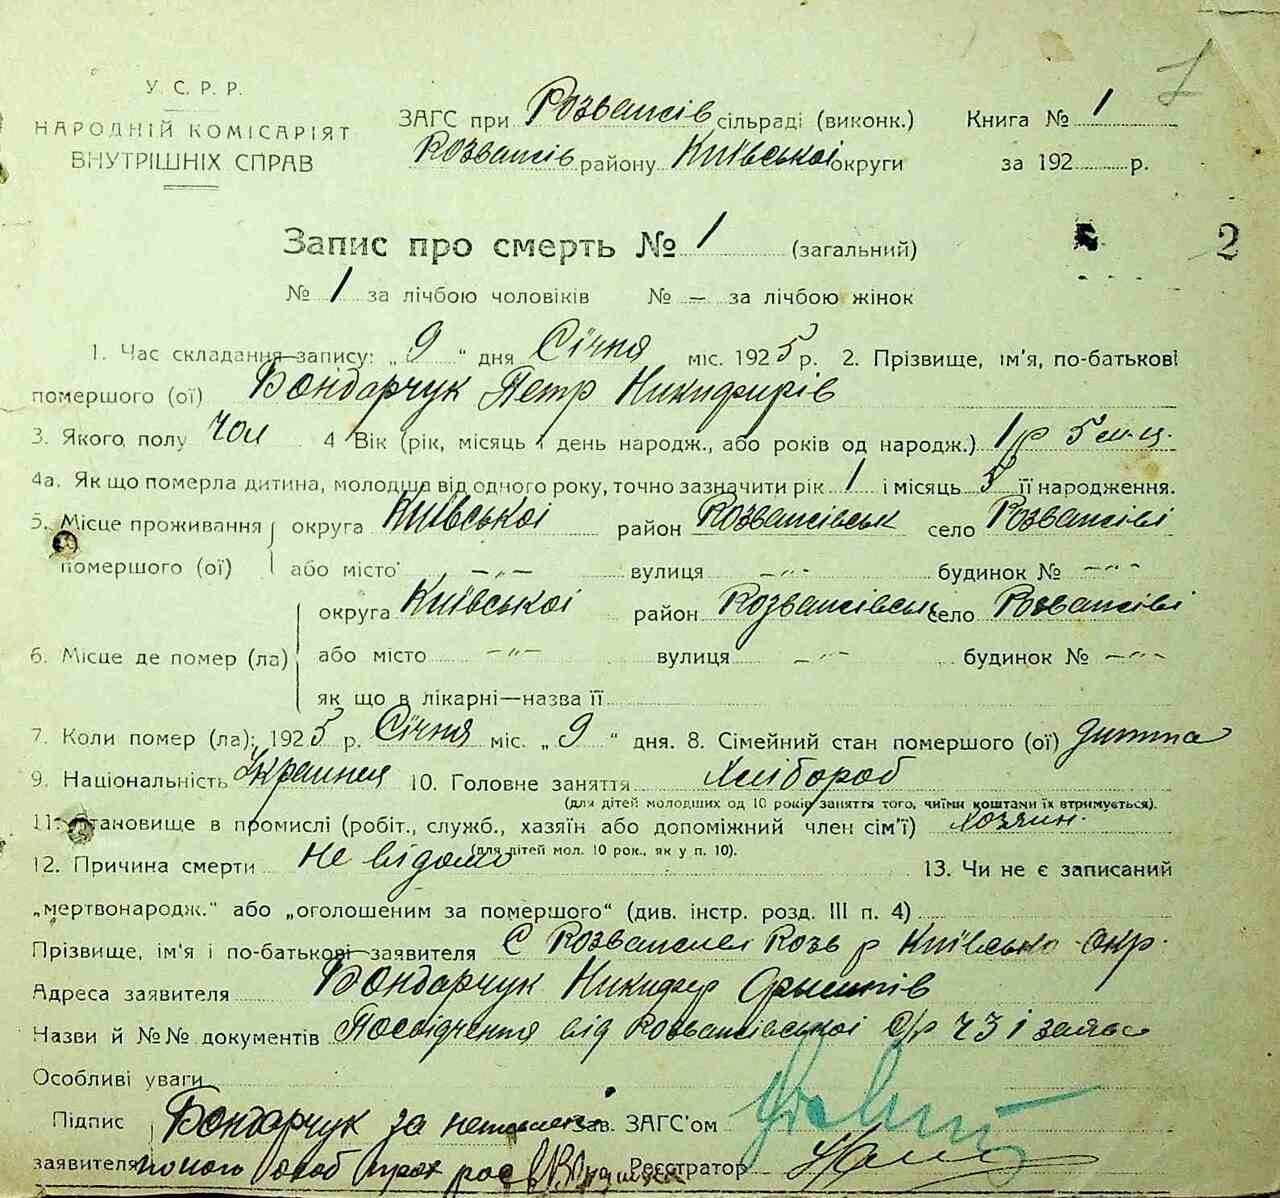 У. С. Р. Р.
НАРОДНІЙ КОМІСАРІЯТ
ВНУТРІШНІХ СПРАВ
ЗАГС при Розважів сільраді (виконк.) Книга № 1
Розважів району Київської округи за 192 р.
Запис про смерть № 1 (загальний) 2
№ 1 за лічбою чоловіків № – за лічбою жінок
1. Час складання запису: „ 9 “ дня Січня міс. 1925 р. 2. Прізвище, ім'я, по-батькові
помершого (ої) Бондарчук Петр Никифирів
3. Якого полу чол 4 Вік (рік, місяць і день народж., або років од народж.) 1 р 5 м-ц.
4а. Як що померла дитина, молодша від одного року, точно зазначити рік 1 і місяць 5 її народження.
5. Місце проживання округа Київської район Розважівськ село Розважіві
помершого (ої) або місто –"– вулиця –"– будинок № –"–
округа Київської район Розважівськ село Розважіві
6. Місце де помер (ла) або місто –"– вулиця –"– будинок № –"–
як що в лікарні—назва її
7. Коли помер (ла); 1925 р. Січня міс. „ 9 “ дня. 8. Сімейний стан помершого (ої) дитта
9. Національність 10. Головне заняття Хлібороб
(для дітей молодших од 10 років заняття того, чиїми коштами їх втримується).
11. Становище в промислі (робіт., служб., хазяїн або допоміжний член сім'ї) хозяин.
(для дітей мол. 10 рок., як у п. 10).
12. Причина смерти Не відомо 13. Чи не є записаний
„мертвонародж.“ або „оголошеним за помершого“ (див. інстр. розд. III п. 4)
Прізвище, ім'я і по-батькові заявителя С Розважеві Розв р Київсько окр.
Адреса заявителя Бондарчук Никифер
Назви й №№ документів Посвідчення від Розважівської с/р ч 3 і заява
Особливі уваги
Підпис Бондарчук за Зав. ЗАГС'ом
заявителя Реєстратор